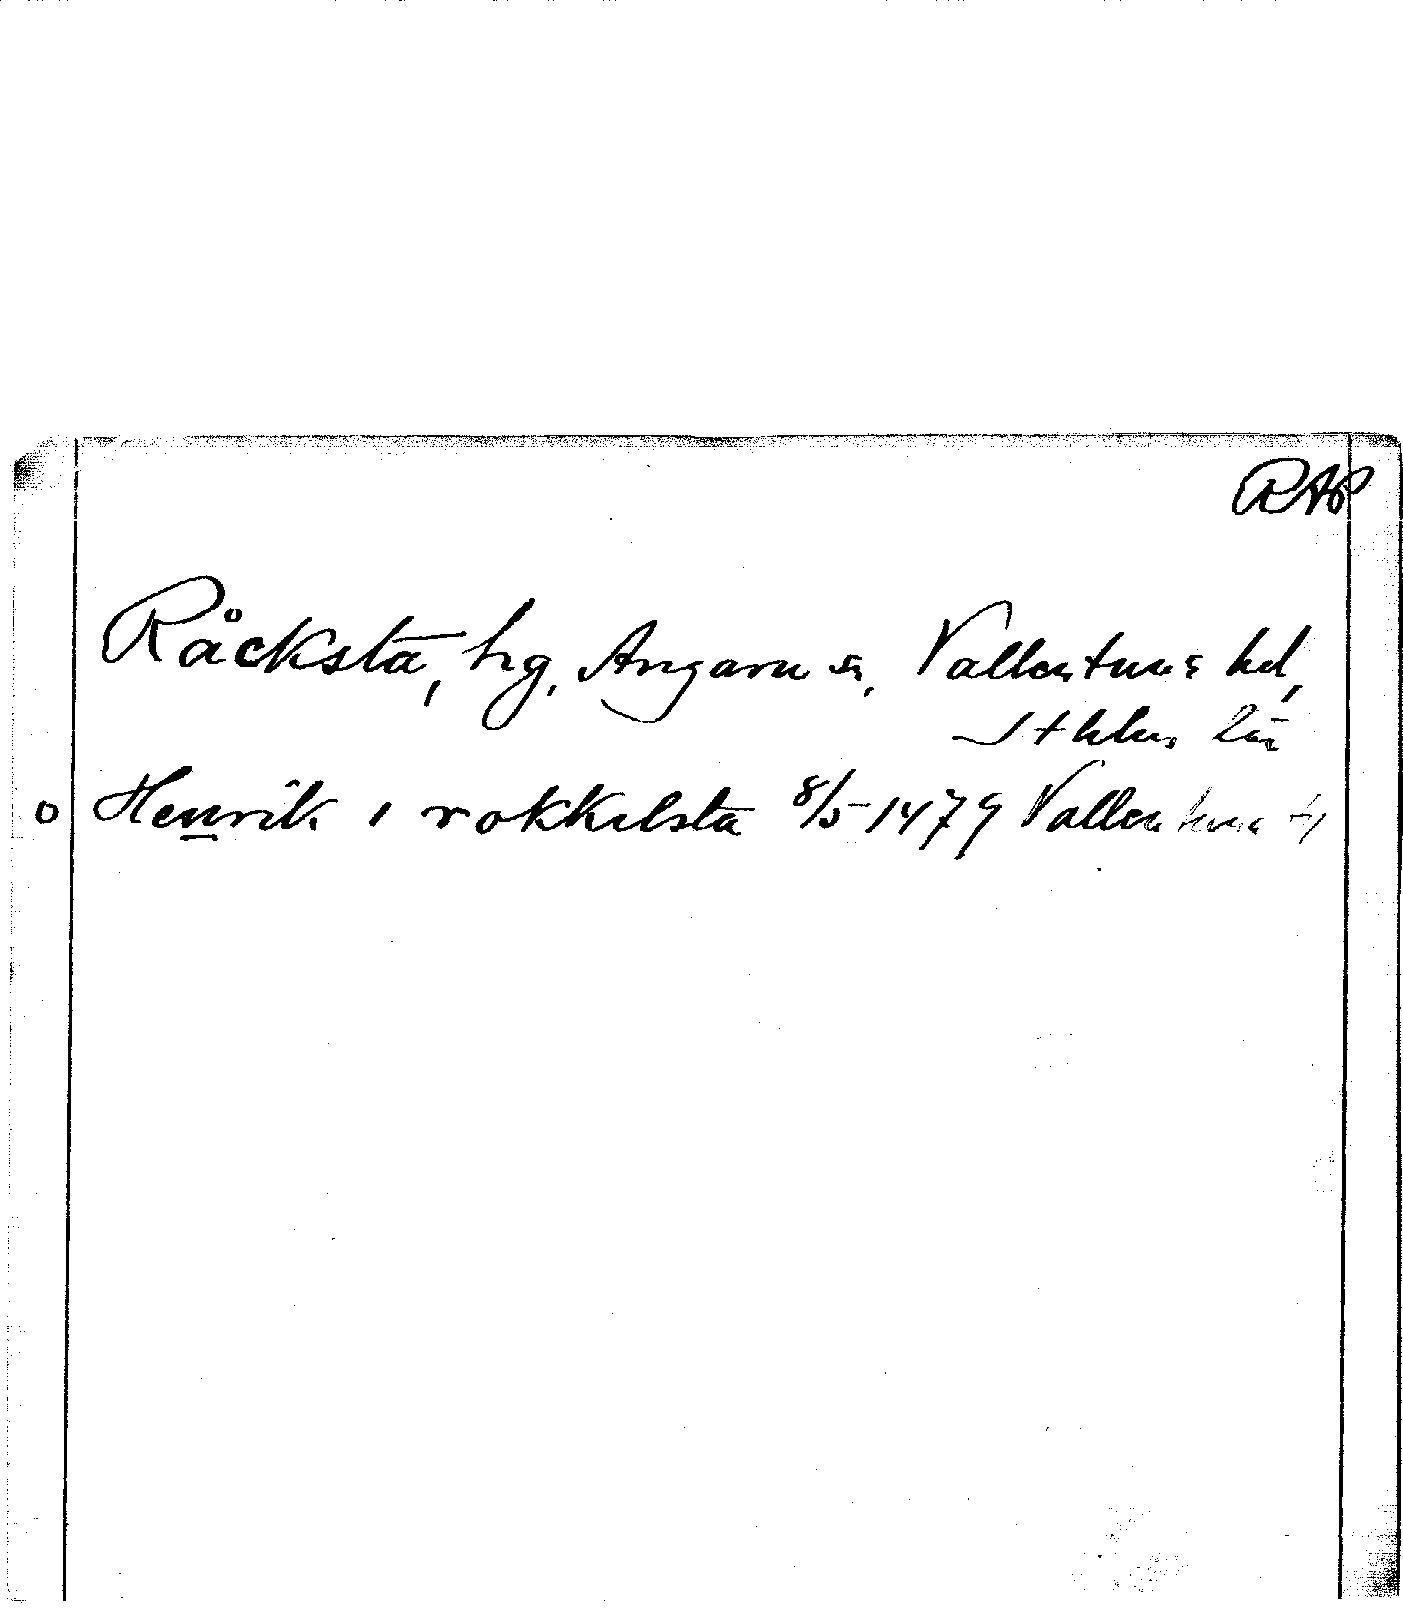 RAP
Råcksta, hg, Angarn sn, Vallentuna hd,
Sthlms län
o Henrik i rokkilsta 8/5 1479 Vallentuna